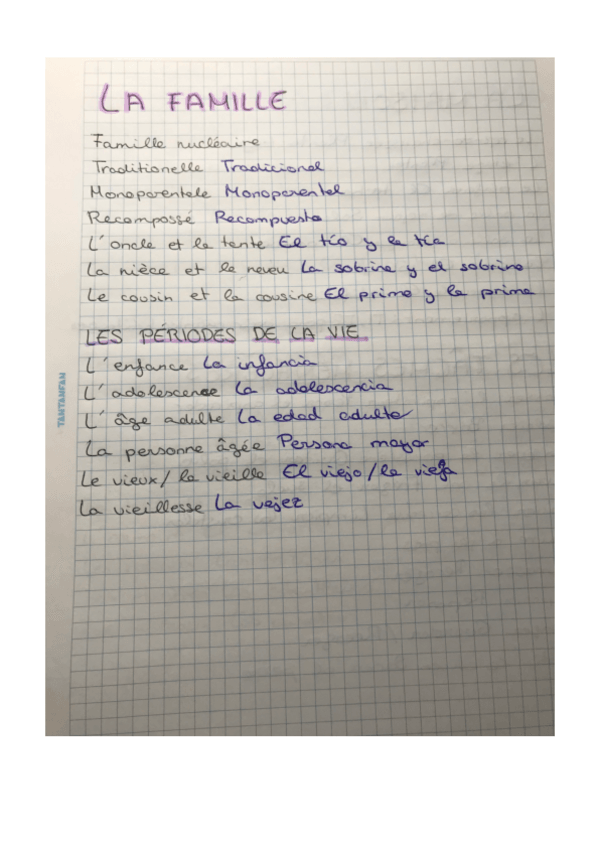 LA FAMILLE
Famille nucléaire
Traditionelle Tradicional
Monoparentale Monoparental
Recompossé Recompuesta
L'oncle et la tante El tío y la tía
La nièce et le neveu La sobrina y el sobrino
Le cousin et la cousine El primo y la prima
LES PÉRIODES DE LA VIE
L'enfance La infancia
L'adolescence La adolescencia
L'âge adulte La edad adulta
La personne âgée Persona mayor
Le vieux/la vieille El viejo/la vieja
La vieillesse La vejez
TANTANFAN